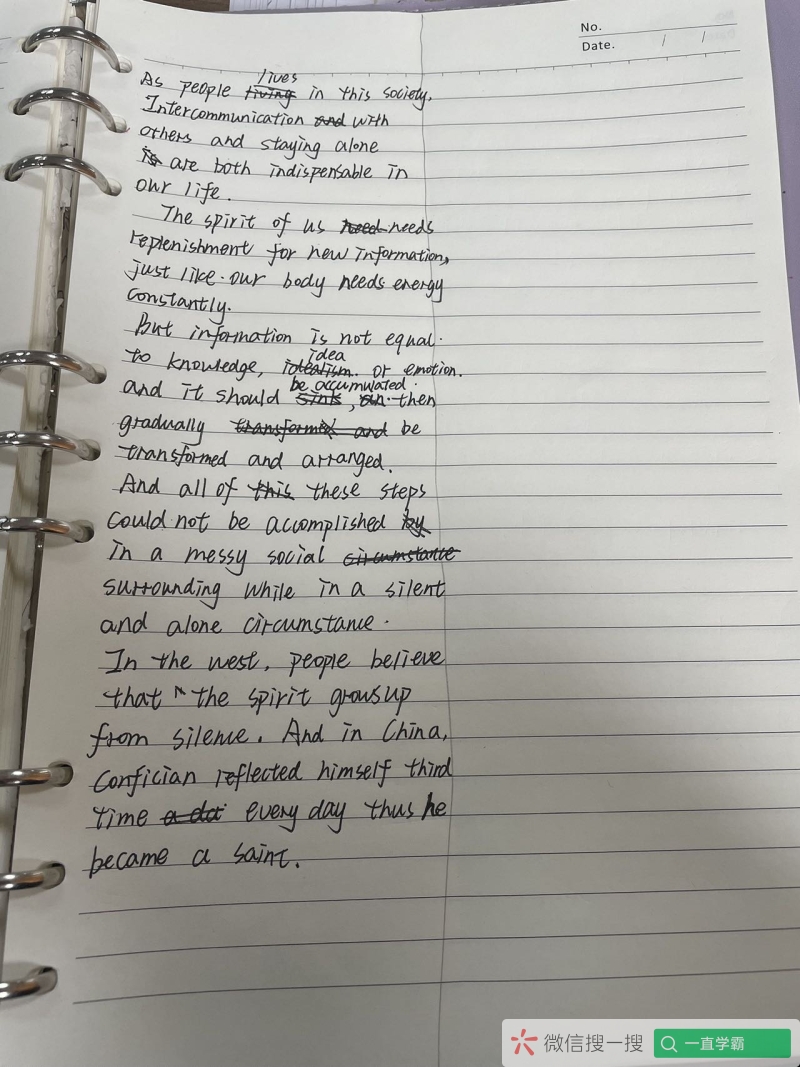 No.
Date. / /
lives
As people living in this society,
Intercommunication and with
others and staying alone
is are both indispensable in
our life.
The spirit of us need needs
replenishment for new information,
just like our body needs energy
constantly.
But information is not equal
idea
to knowledge, idealism or emotion.
be accumulated
and it should sink, an then
gradually transformed and be
transformed and arranged.
And all of this these steps
could not be accomplished by
in a messy social circumstance
surrounding while in a silent
and alone circumstance.
In the west, people believe
that " the spirit grows up
from silence. And in China,
Confician reflected himself third
time a da every day thus he
became a saint.
微信搜一搜
一直学霸